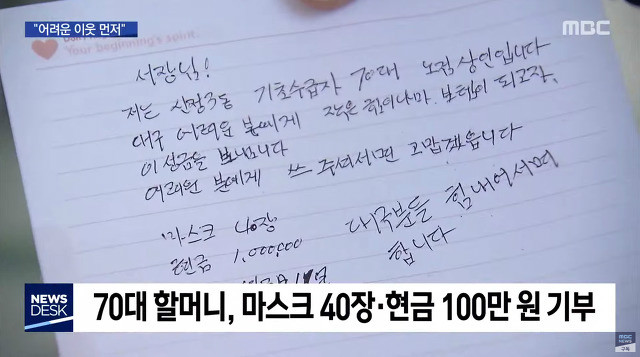 "어려운 이웃 먼저"
MBC
Your beginning's spirit.
서장님!
저는 신정3동 기초수급자 70대 노점상인입니다
대구 어려운 분에게 작은 힘이나마 보탬이 되고자
이 성금을 보냅니다
어려원 분에게 쓰 주셔서면 고맙겠읍니다
마스크 40장
현금 1,000,000
대국분들 힘내어서며
합니다
NEWS DESK
70대 할머니, 마스크 40장·현금 100만 원 기부
MBC NEWS
구독